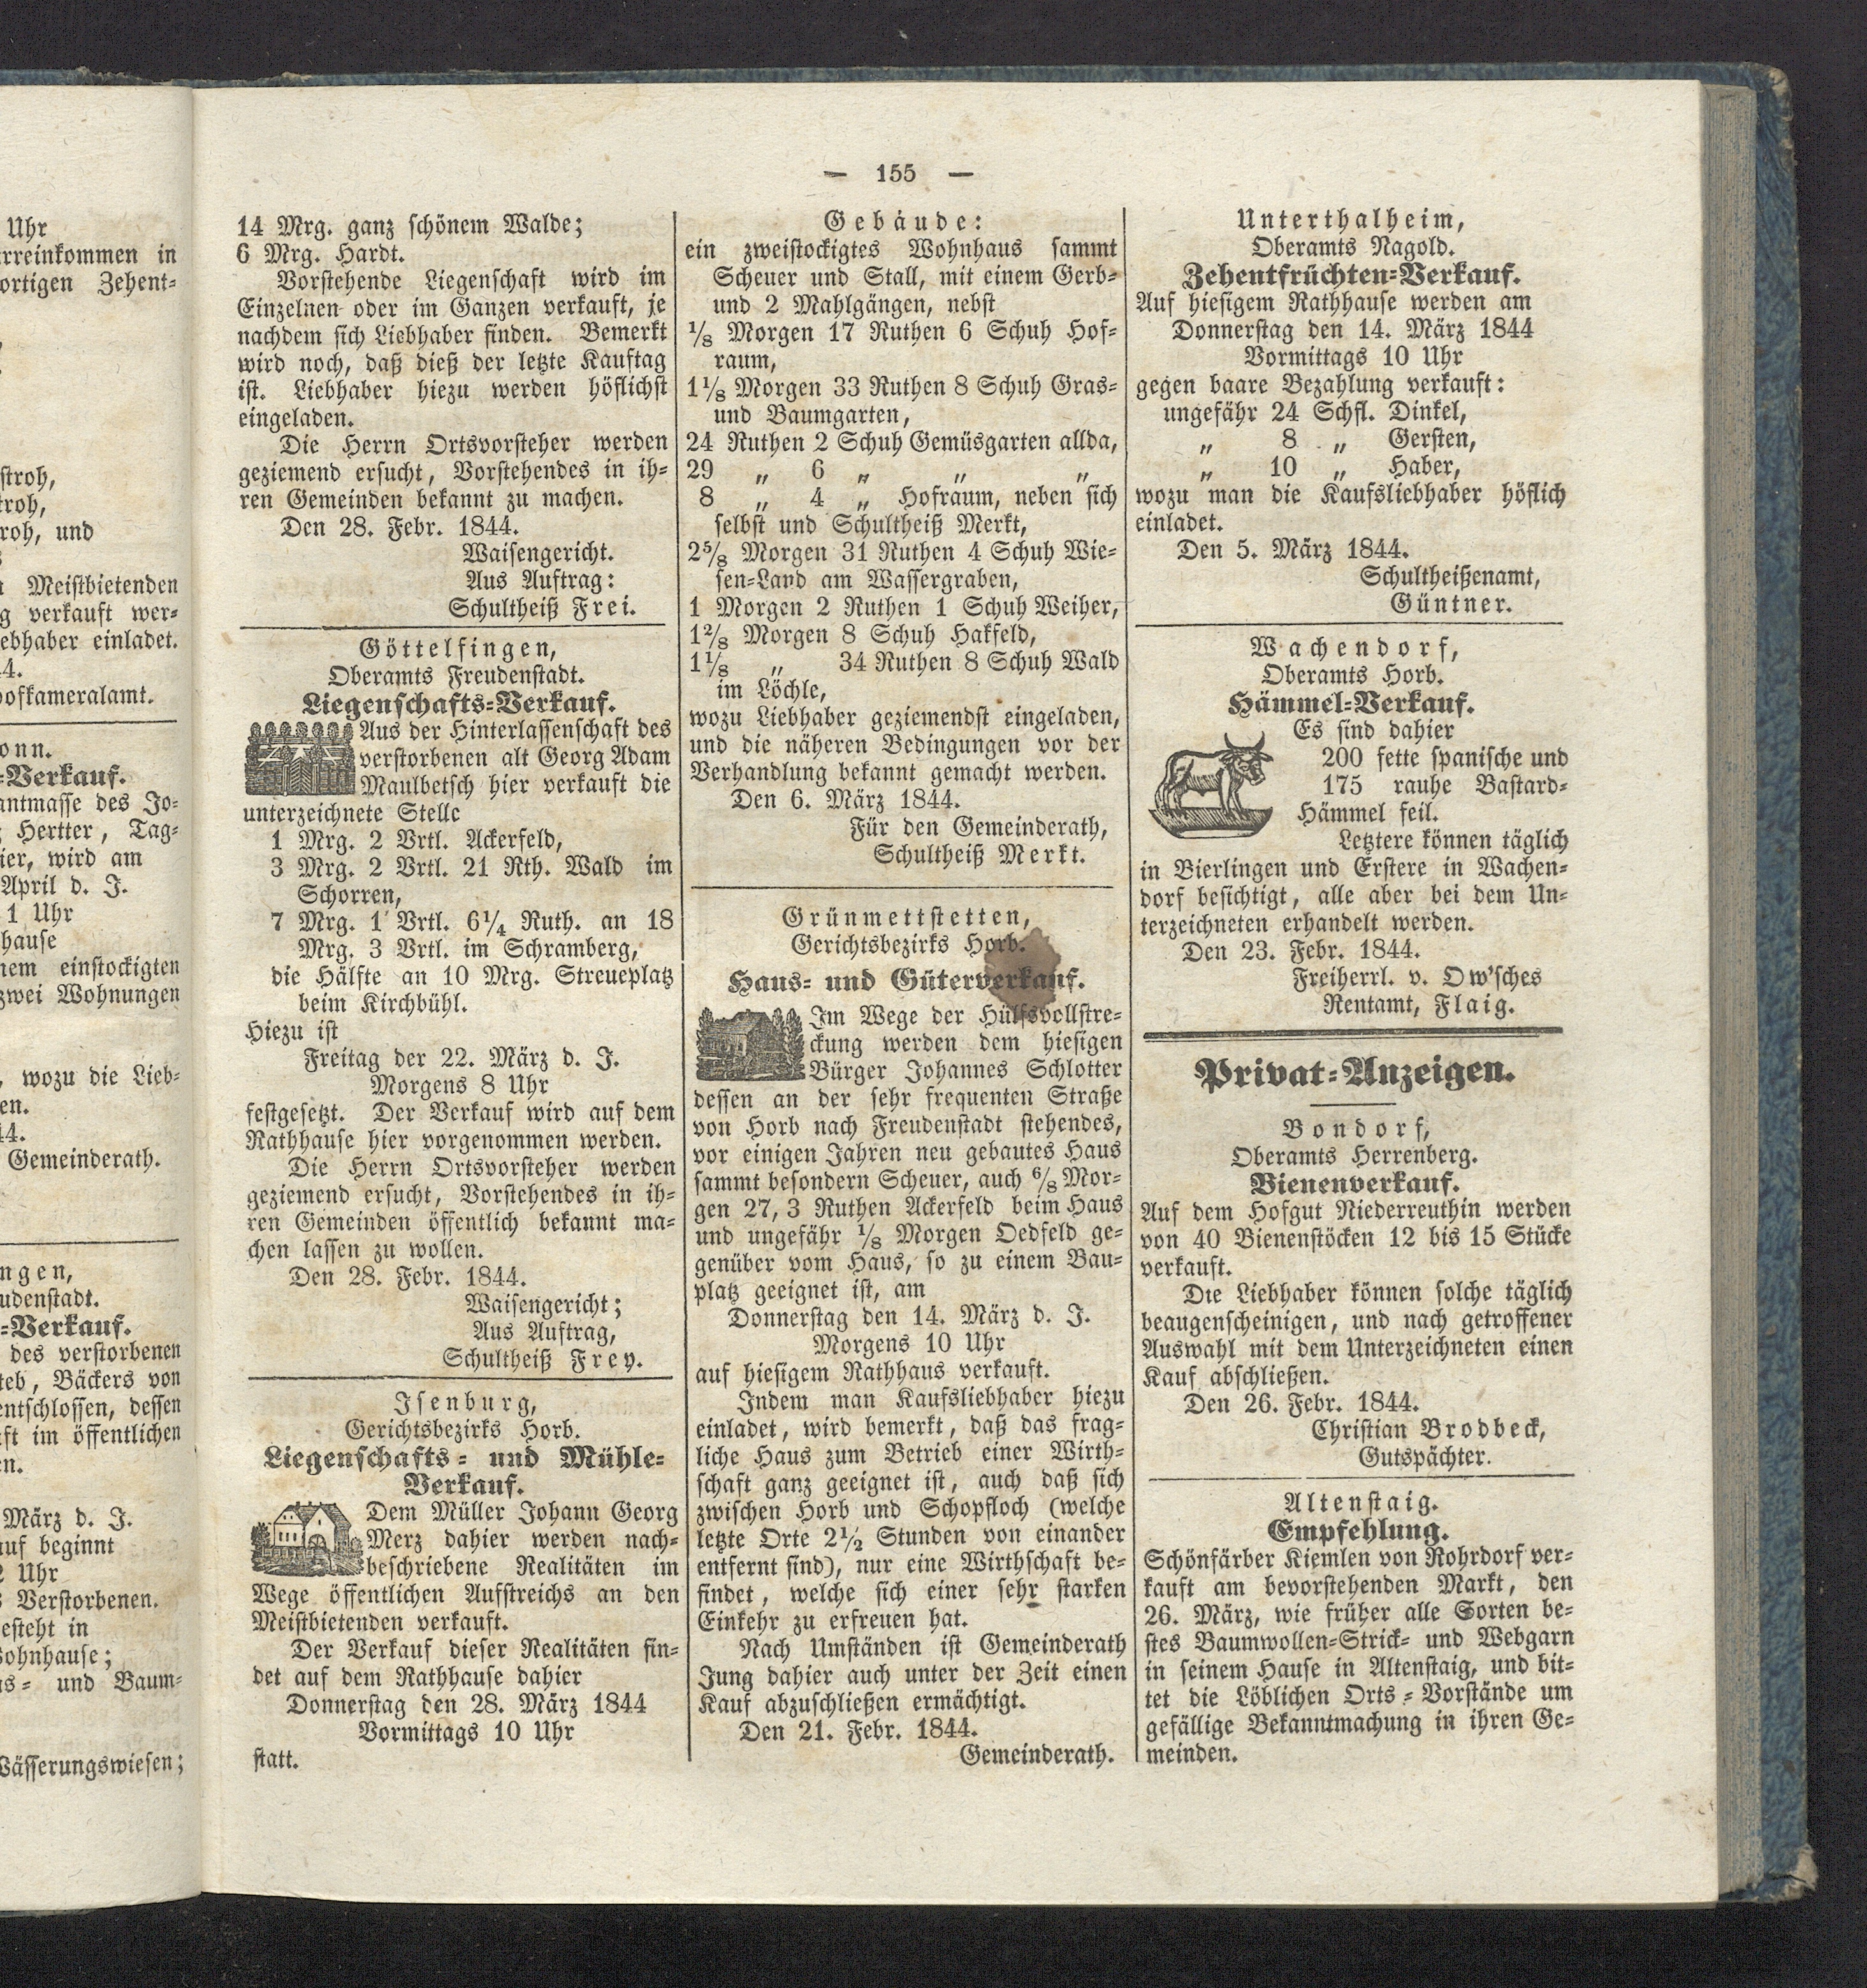 Uhr
rreinkommen in
ortigen Zehent-
stroh,
troh,
roh, und
Meistbietenden
g verkauft wer-
ebhaber einladet.
44.
ofkameralamt.
onn.
-Verkauf.
antmasse des Jo-
Hertter, Tag-
ier, wird am
April d. J.
1 Uhr
hause
nem einstockigten
zwei Wohnungen
, wozu die Lieb-
en.
44.
Gemeinderath.
ngen,
udenstadt.
-Verkauf.
des verstorbenen
teb, Bäckers von
entschlossen, dessen
ft im öffentlichen
en.
März d. J.
uf beginnt
Uhr
Verstorbenen.
esteht in
ohnhause;
s- und Baum-
Wässerungswiesen;
— 155 —
14 Mrg. ganz schönem Walde;
6 Mrg. Hardt.
Vorstehende Liegenschaft wird im
Einzelnen oder im Ganzen verkauft, je
nachdem sich Liebhaber finden. Bemerkt
wird noch, daß dieß der letzte Kauftag
ist. Liebhaber hiezu werden höflichst
eingeladen.
Die Herrn Ortsvorsteher werden
geziemend ersucht, Vorstehendes in ih-
ren Gemeinden bekannt zu machen.
Den 28. Febr. 1844.
Waisengericht.
Aus Auftrag:
Schultheiß Frei.
Göttelfingen,
Oberamts Freudenstadt.
Liegenschafts-Verkauf.
Aus der Hinterlassenschaft des
verstorbenen alt Georg Adam
Maulbetsch hier verkauft die
unterzeichnete Stelle
1 Mrg. 2 Vrtl. Ackerfeld,
3 Mrg. 2 Vrtl. 21 Rth. Wald im
Schorren,
7 Mrg. 1 Vrtl. 6¼ Ruth. an 18
Mrg. 3 Vrtl. im Schramberg,
die Hälfte an 10 Mrg. Streueplatz
beim Kirchbühl.
Hiezu ist
Freitag der 22. März d. J.
Morgens 8 Uhr
festgesetzt. Der Verkauf wird auf dem
Rathhause hier vorgenommen werden.
Die Herrn Ortsvorsteher werden
geziemend ersucht, Vorstehendes in ih-
ren Gemeinden öffentlich bekannt ma-
chen lassen zu wollen.
Den 28. Febr. 1844.
Waisengericht;
Aus Auftrag,
Schultheiß Frey.
Isenburg,
Gerichtsbezirks Horb.
Liegenschafts- und Mühle-
Verkauf.
Dem Müller Johann Georg
Merz dahier werden nach-
beschriebene Realitäten im
Wege öffentlichen Aufstreichs an den
Meistbietenden verkauft.
Der Verkauf dieser Realitäten fin-
det auf dem Rathhause dahier
Donnerstag den 28. März 1844
Vormittags 10 Uhr
statt.
Gebäude:
ein zweistockigtes Wohnhaus sammt
Scheuer und Stall, mit einem Gerb-
und 2 Mahlgängen, nebst
⅛ Morgen 17 Ruthen 6 Schuh Hof-
raum,
1⅛ Morgen 33 Ruthen 8 Schuh Gras-
und Baumgarten,
24 Ruthen 2 Schuh Gemüsgarten allda,
29 „ 6 „ „ „
8 „ 4 „ Hofraum, neben sich
selbst und Schultheiß Merkt,
2⅝ Morgen 31 Ruthen 4 Schuh Wie-
sen-Land am Wassergraben,
1 Morgen 2 Ruthen 1 Schuh Weiher,
1²/₈ Morgen 8 Schuh Hakfeld,
1⅛ „ 34 Ruthen 8 Schuh Wald
im Löchle,
wozu Liebhaber geziemendst eingeladen,
und die näheren Bedingungen vor der
Verhandlung bekannt gemacht werden.
Den 6. März 1844.
Für den Gemeinderath,
Schultheiß Merkt.
Grünmettstetten,
Gerichtsbezirks Horb.
Haus- und Güterverkauf.
Im Wege der Hülfsvollstre-
ckung werden dem hiesigen
Bürger Johannes Schlotter
dessen an der sehr frequenten Straße
von Horb nach Freudenstadt stehendes,
vor einigen Jahren neu gebautes Haus
sammt besondern Scheuer, auch ⁶/₈ Mor-
gen 27, 3 Ruthen Ackerfeld beim Haus
und ungefähr ⅛ Morgen Oedfeld ge-
genüber vom Haus, so zu einem Bau-
platz geeignet ist, am
Donnerstag den 14. März d. J.
Morgens 10 Uhr
auf hiesigem Rathhaus verkauft.
Indem man Kaufsliebhaber hiezu
einladet, wird bemerkt, daß das frag-
liche Haus zum Betrieb einer Wirth-
schaft ganz geeignet ist, auch daß sich
zwischen Horb und Schopfloch (welche
letzte Orte 2½ Stunden von einander
entfernt sind), nur eine Wirthschaft be-
findet, welche sich einer sehr starken
Einkehr zu erfreuen hat.
Nach Umständen ist Gemeinderath
Jung dahier auch unter der Zeit einen
Kauf abzuschließen ermächtigt.
Den 21. Febr. 1844.
Gemeinderath.
Unterthalheim,
Oberamts Nagold.
Zehentfrüchten-Verkauf.
Auf hiesigem Rathhause werden am
Donnerstag den 14. März 1844
Vormittags 10 Uhr
gegen baare Bezahlung verkauft:
ungefähr 24 Schfl. Dinkel,
„ 8 „ Gersten,
„ 10 „ Haber,
wozu man die Kaufsliebhaber höflich
einladet.
Den 5. März 1844.
Schultheißenamt,
Güntner.
Wachendorf,
Oberamts Horb.
Hämmel-Verkauf.
Es sind dahier
200 fette spanische und
175 rauhe Bastard-
Hämmel feil.
Letztere können täglich
in Bierlingen und Erstere in Wachen-
dorf besichtigt, alle aber bei dem Un-
terzeichneten erhandelt werden.
Den 23. Febr. 1844.
Freiherrl. v. Ow'sches
Rentamt, Flaig.
Privat-Anzeigen.
Bondorf,
Oberamts Herrenberg.
Bienenverkauf.
Auf dem Hofgut Niederreuthin werden
von 40 Bienenstöcken 12 bis 15 Stücke
verkauft.
Die Liebhaber können solche täglich
beaugenscheinigen, und nach getroffener
Auswahl mit dem Unterzeichneten einen
Kauf abschließen.
Den 26. Febr. 1844.
Christian Brodbeck,
Gutspächter.
Altenstaig.
Empfehlung.
Schönfärber Kiemlen von Rohrdorf ver-
kauft am bevorstehenden Markt, den
26. März, wie früher alle Sorten be-
stes Baumwollen-Strick- und Webgarn
in seinem Hause in Altenstaig, und bit-
tet die Löblichen Orts-Vorstände um
gefällige Bekanntmachung in ihren Ge-
meinden.